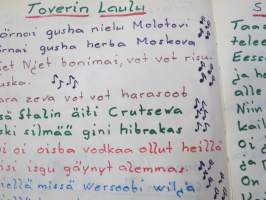 Toverin Laulu
örnai gusha nielu Molotovi
örnai gusha herba Moskova
iet Njet bonimai, vot vot risu-
uska.
ara zeva vot vot harasoob
sä Stalin äiti Crutsewa
ski silmää gini hibrakas
oi oisba vodkaa ollut heillä
isi isgu gäynyt alemmas
iellä missä Wersoobi wilja
S
Taas
telee
Eess
ja
Niin
kai
Ol
ja
On